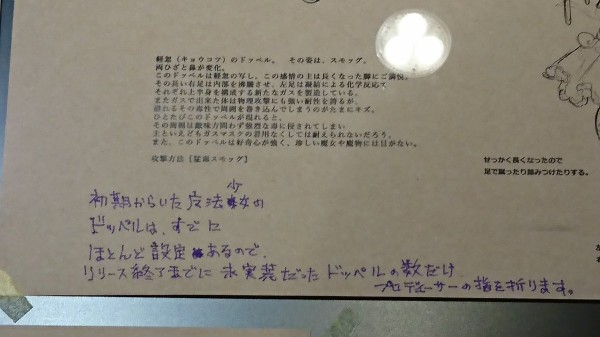 軽忽（キョウコツ）のドッペル。　その姿は、スモッグ。
両ひざと鼻が変化。
このドッペルは軽忽の写し。この感情の主は長くなった脚にご満悦。
その長い右足は内部を沸騰させ、左足は凝結による化学反応で
それぞれ上半身を構成する新たなガスを製造している。
またガスで出来た体は物理攻撃にも強い耐性を誇るが、
溢れるその毒性で周囲を巻き込んでしまうのがたまにキズ。
ひとたびこのドッペルが現れると、
その両側は敵味方問わず強烈な毒に侵されてしまい
主といえどもガスマスクの着用なくしては耐えられないだろう。
また、このドッペルは好奇心が強く、珍しい魔女や魔物には目がない。
攻撃方法［猛毒スモッグ］
せっかく長くなったので
足で蹴ったり踏みつけたりする。
初期からいた魔法少女の
ドッペルは、すでに
ほとんど設定あるので、
リリース終了までに未実装だったドッペルの数だけ
プロデューサーの指を折ります。